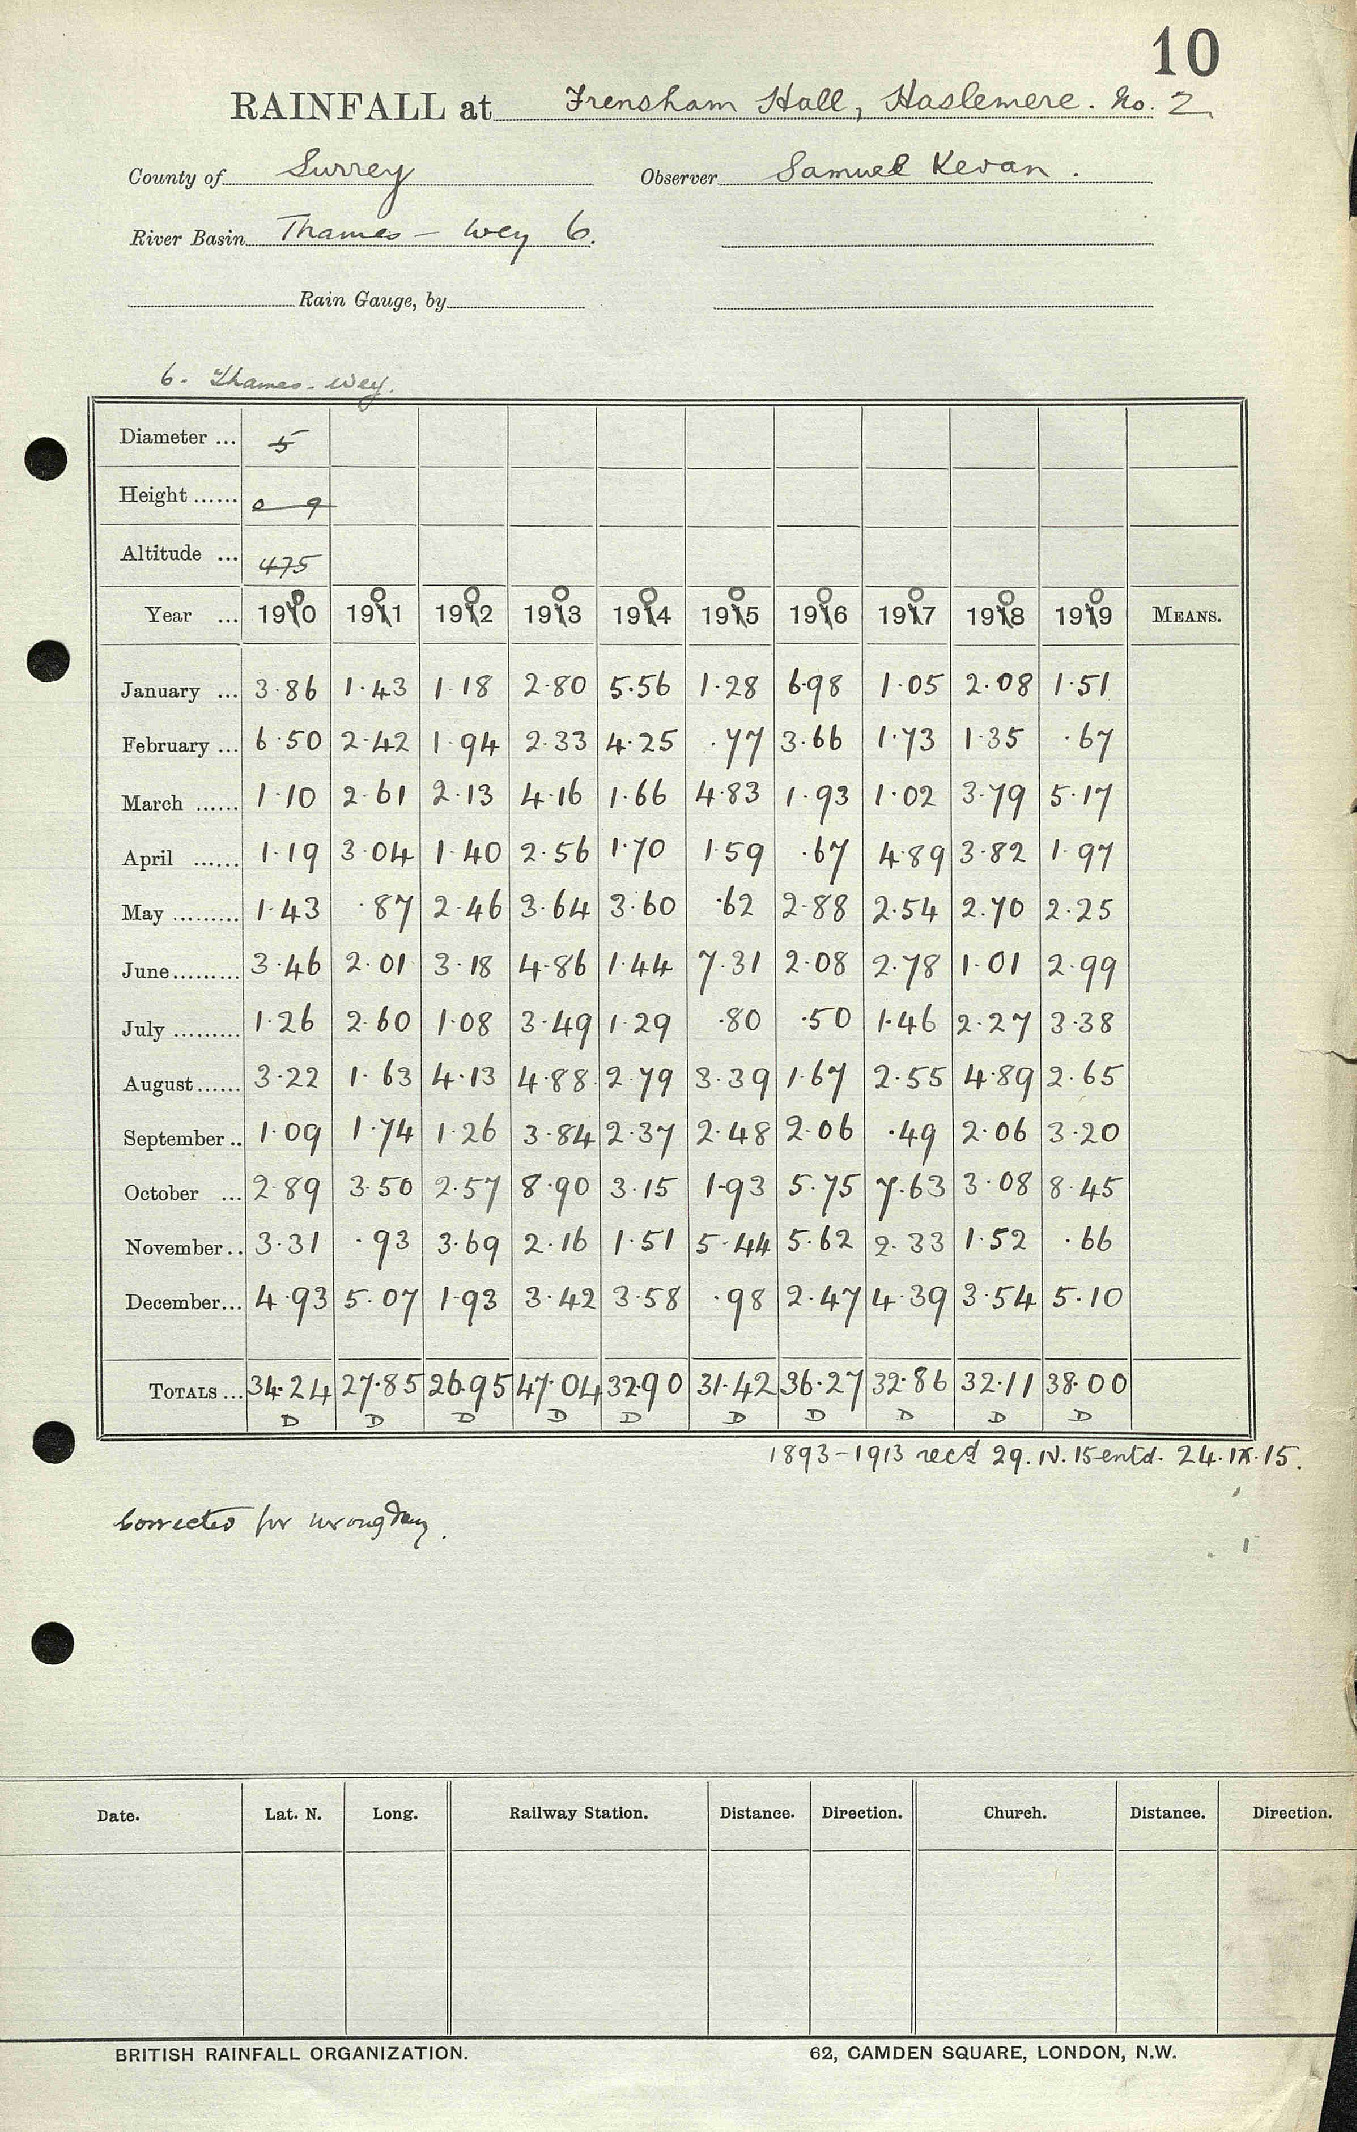 10
RAINFALL at Frensham Hall, Haslemere. No. 2
County of Surrey Observer Samuel Kevan.
River Basin Thames - Wey 6.
Rain Gauge, by
6. Thames - Wey.
Diameter ... 5
Height ...... 0 9
Altitude ... 475
Year ... 1900 1901 1902 1903 1904 1905 1906 1907 1908 1909 MEANS.
January ... 3.86 1.43 1.18 2.80 5.56 1.28 6.98 1.05 2.08 1.51
February ... 6.50 2.42 1.94 2.33 4.25 .77 3.66 1.73 1.35 .67
March ...... 1.10 2.61 2.13 4.16 1.66 4.83 1.93 1.02 3.79 5.17
April ...... 1.19 3.04 1.40 2.56 1.70 1.59 .67 4.89 3.82 1.97
May ......... 1.43 .87 2.46 3.64 3.60 .62 2.88 2.54 2.70 2.25
June ......... 3.46 2.01 3.18 4.86 1.44 7.31 2.08 2.78 1.01 2.99
July ......... 1.26 2.60 1.08 3.49 1.29 .80 .50 1.46 2.27 3.38
August ...... 3.22 1.63 4.13 4.88 2.79 3.39 1.67 2.55 4.89 2.65
September .. 1.09 1.74 1.26 3.84 2.37 2.48 2.06 .49 2.06 3.20
October ... 2.89 3.50 2.57 8.90 3.15 1.93 5.75 7.63 3.08 8.45
November .. 3.31 .93 3.69 2.16 1.51 5.44 5.62 2.33 1.52 .66
December ... 4.93 5.07 1.93 3.42 3.58 .98 2.47 4.39 3.54 5.10
TOTALS ... 34.24 27.85 26.95 47.04 32.90 31.42 36.27 32.86 32.11 38.00
D D D D D D D D D D
1893-1913 recd 29.IV.15 entd. 24.IX.15.
Corrected for wrong day.
Date. Lat. N. Long. Railway Station. Distance. Direction. Church. Distance. Direction.
BRITISH RAINFALL ORGANIZATION. 62, CAMDEN SQUARE, LONDON, N.W.